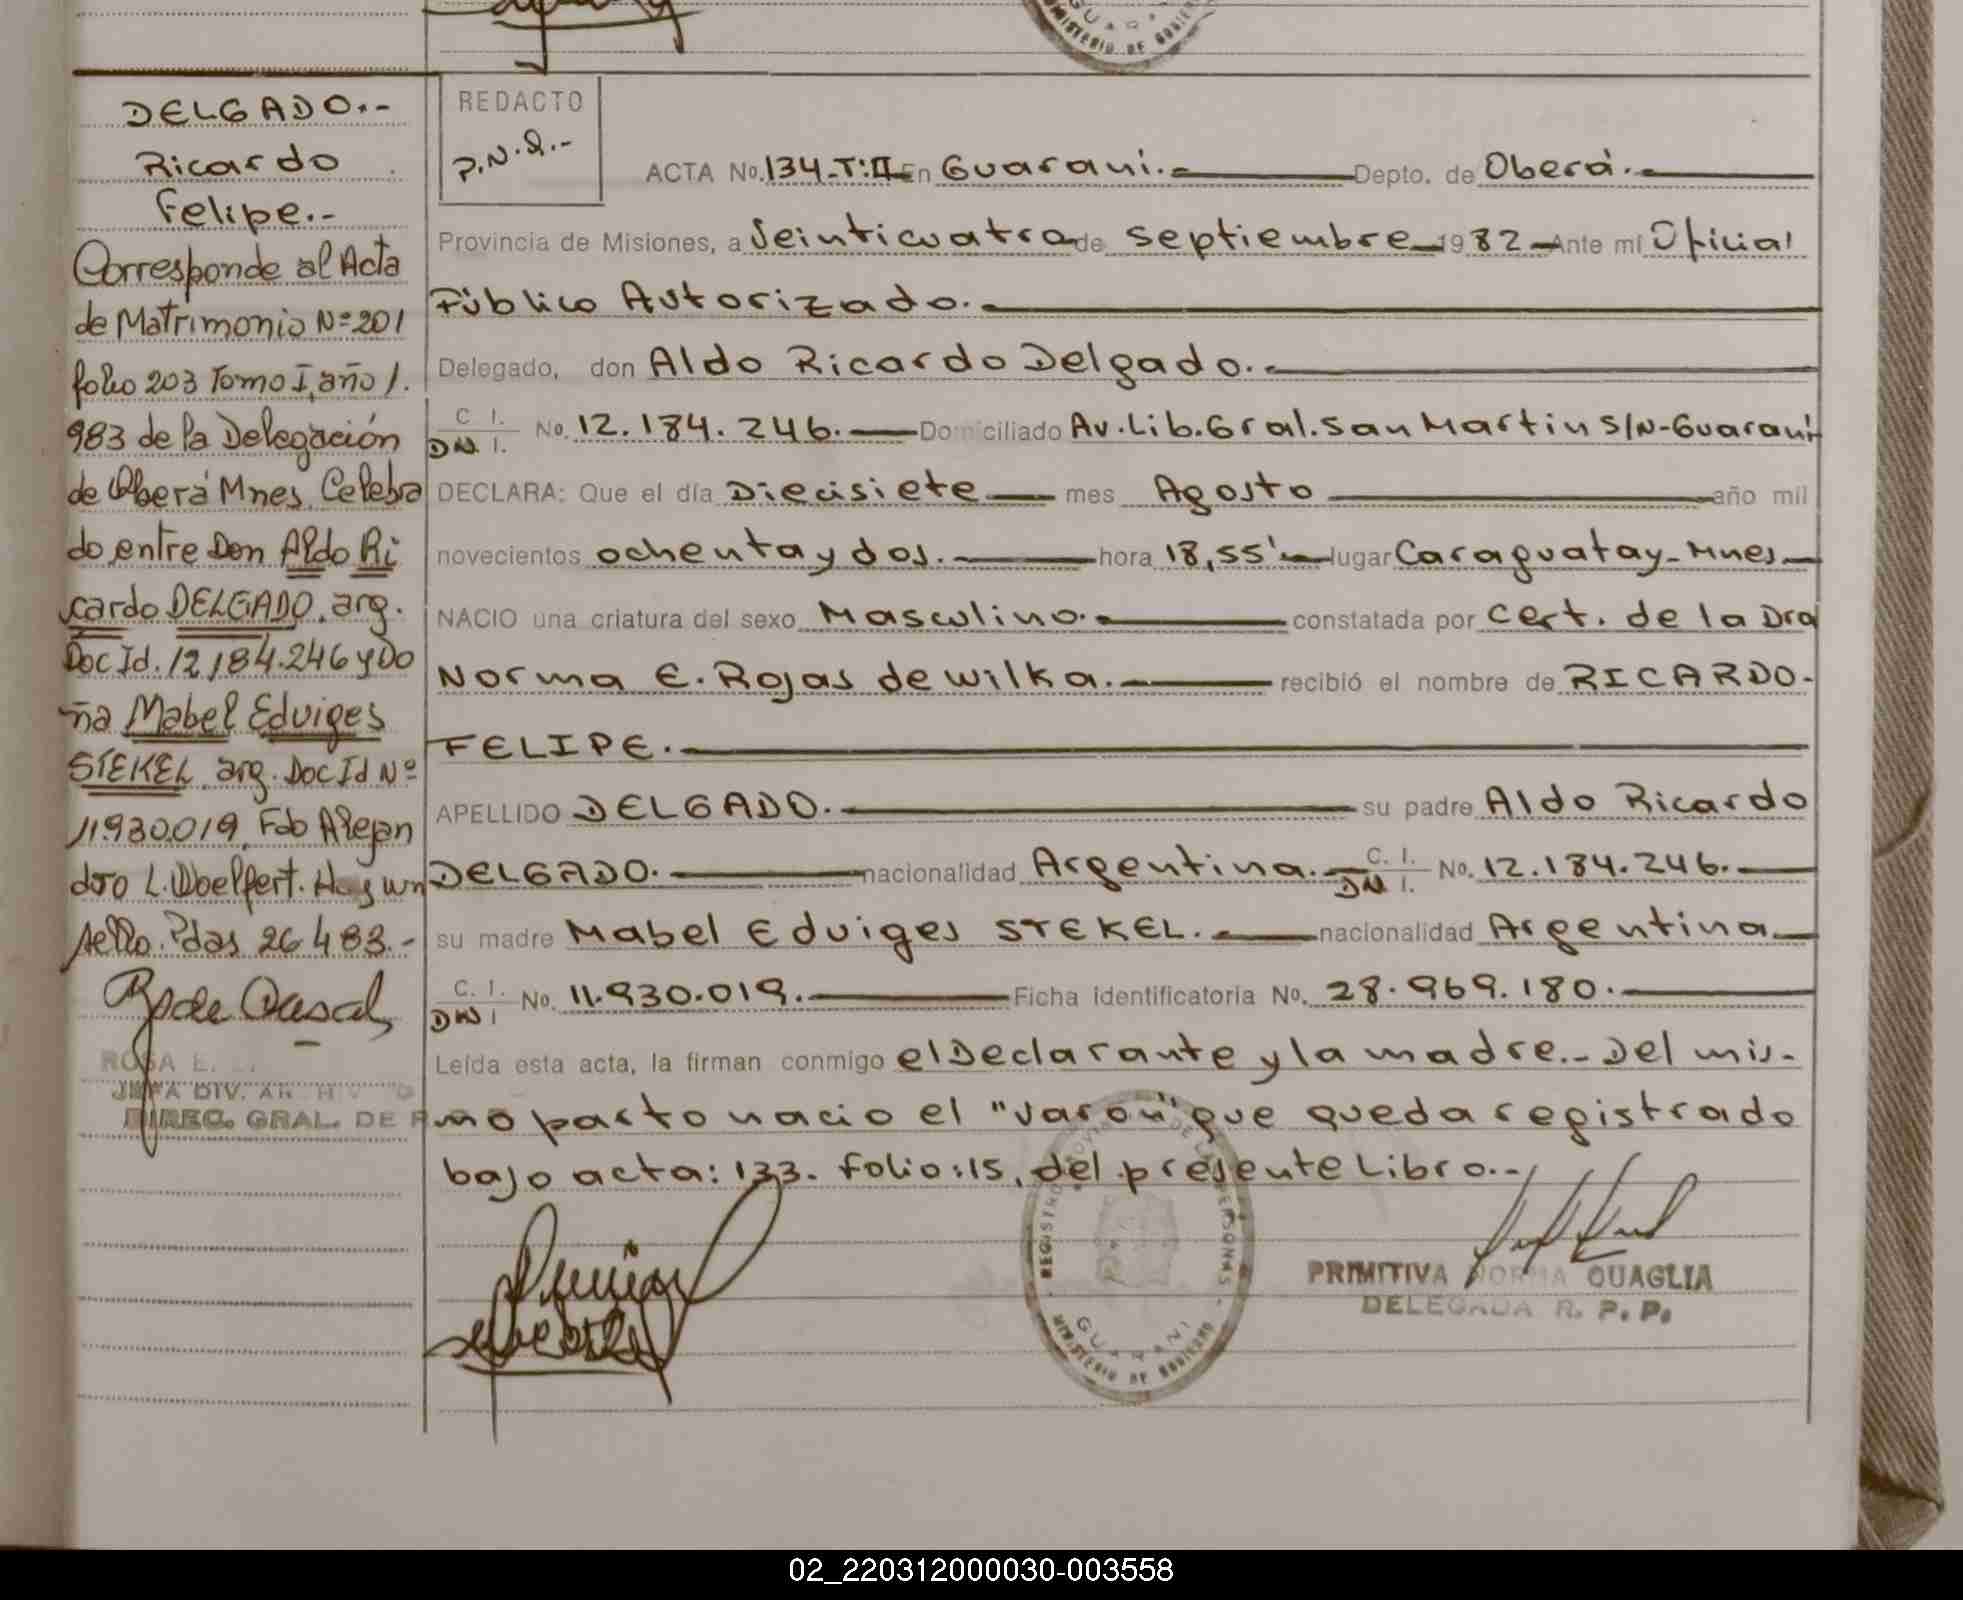 DELGADO.-
Ricardo
Felipe.-
Corresponde al Acta
de Matrimonio Nº 201
folio 203 Tomo I, año 1.
983 de la Delegación
de Oberá Mnes. Celebra
do entre Don Aldo Ri
cardo DELGADO, arg.
Doc Id. 12,184.246 y Do
ña Mabel Eduiges
STEKEL, arg. Doc Id Nº
11.930.019, Fdo Alejan
dro L. Woelfert. Hay un
sello. Pdas 26 4 83.-
ROSA E.
JEFA DIV. ARCHIVO
DIREC. GRAL. DE R
REDACTO
P.N.Q.-
ACTA No. 134-T:II- En Guarani.- Depto. de Oberá.-
Provincia de Misiones, a Veinticuatro de Septiembre 1982 Ante mí Oficial
Público Autorizado.-
Delegado, don Aldo Ricardo Delgado.-
C I. DN. I. No. 12.184.246.- Domiciliado Av. Lib. Gral. San Martin S/N-Guarani
DECLARA: Que el día Diecisiete mes Agosto año mil
novecientos ochenta y dos.- hora 18,55' lugar Caraguatay-Mnes-
NACIO una criatura del sexo Masculino.- constatada por Cert. de la Dra
Norma E. Rojas de Wilka.- recibió el nombre de RICARDO-
FELIPE.-
APELLIDO DELGADO.- su padre Aldo Ricardo
DELGADO.- nacionalidad Argentina.- C. I. DN I. No. 12.184.246.-
su madre Mabel Eduiges STEKEL.- nacionalidad Argentina
C. I. DN I No. 11.930.019.- Ficha identificatoria No. 28.969.180.-
Leída esta acta, la firman conmigo el Declarante y la madre.- Del mis-
mo parto nacio el "varon" que queda registrado
bajo acta: 133. Folio: 15, del presente Libro.-
REGISTRO PROVINCIAL DE LAS PERSONAS
GUARANI
MINISTERIO DE GOBIERNO
PRIMITIVA NORMA QUAGLIA
DELEGADA R. P. P.
02_220312000030-003558